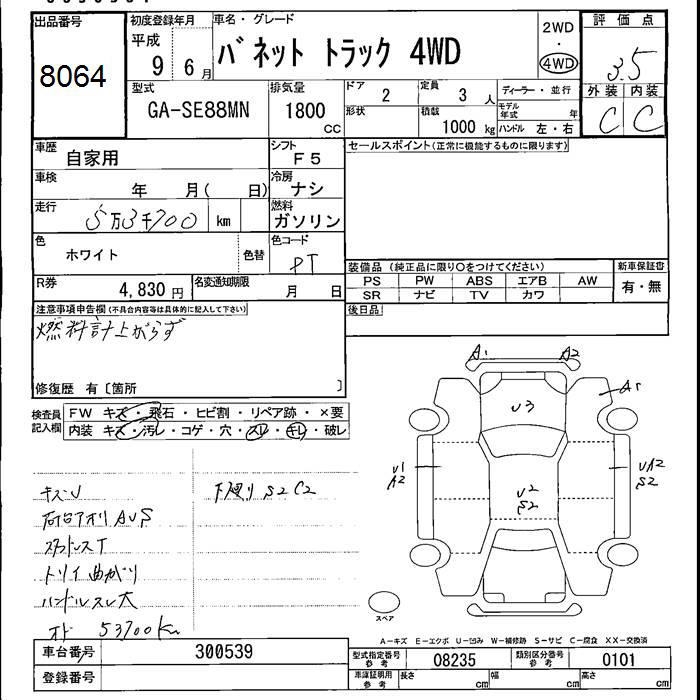 出品番号
8064
初度登録年月
平成 9 6月
車名・グレード
バネット トラック 4WD
2WD
・
4WD
評価点
3.5
外装 内装
C C
型式
GA-SE88MN
排気量
1800 CC
ドア 2
形状
定員 3 人
積載 1000 kg
ディーラー・並行
モデル年式 年
ハンドル 左・右
車歴 自家用
シフト F5
セールスポイント(正常に機能するものに限ります)
車検 年 月( 日)
冷房 ナシ
走行 5万3千700 km
燃料 ガソリン
色 ホワイト
色替
色コード PT
R券 4,830円
名変通知期限 月 日
装備品(純正品に限り○をつけてください)
PS PW ABS エアB AW
SR ナビ TV カワ
新車保証書
有・無
後日品
注意事項申告欄(不具合内容等は具体的に記入して下さい)
燃料計上がらず
修復歴 有〔箇所 〕
検査員記入欄
FW キズ・飛石・ヒビ割・リペア跡・×要
内装 キズ・汚レ・コゲ・穴・スレ・キレ・破レ
キズU
荷台アオリAUS
スタッドレスT
トリイ曲がり
ハンドルスレ大
オド 53700Km
下廻り S2 C2
A1 A2
A1
U3
U1
A2
UA2
S2
U2
S2
スペア
A-キズ E-エクボ U-凹み W-補修跡 S-サビ C-腐食 XX-交換済
車台番号 300539
登録番号
型式指定番号参考 08235
類別区分番号参考 0101
車庫証明用参考 長さ cm 幅 cm 高さ cm